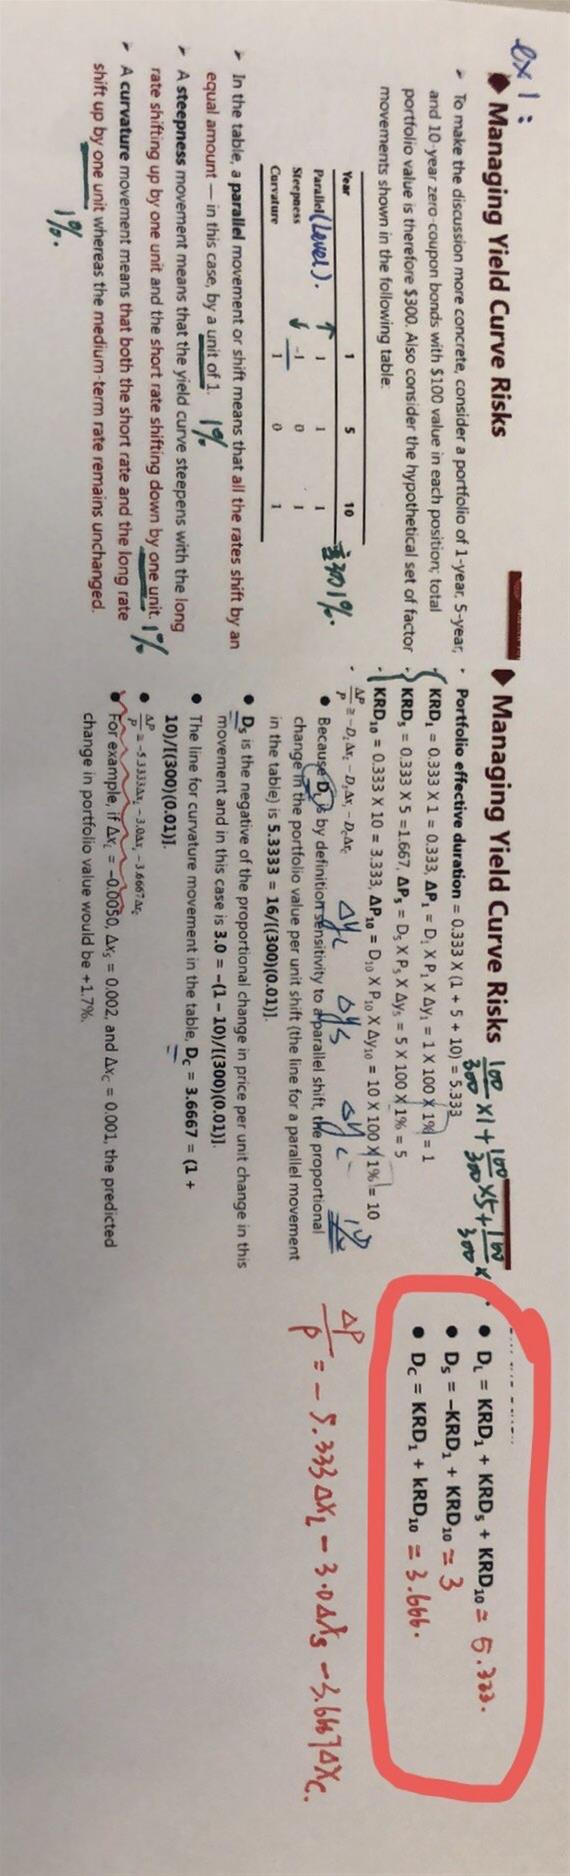 ex 1:
◆ Managing Yield Curve Risks
➢ To make the discussion more concrete, consider a portfolio of 1-year, 5-year,
and 10-year zero-coupon bonds with $100 value in each position; total
portfolio value is therefore $300. Also consider the hypothetical set of factor
movements shown in the following table:
Year 1 5 10
Parallel (Level). ↑ 1 1 1
Steepness ↓ −1 0 1
Curvature 1 0 1
➢ In the table, a parallel movement or shift means that all the rates shift by an
equal amount — in this case, by a unit of 1. 1%
➢ A steepness movement means that the yield curve steepens with the long
rate shifting up by one unit and the short rate shifting down by one unit. 1%
➢ A curvature movement means that both the short rate and the long rate
shift up by one unit whereas the medium-term rate remains unchanged.
1%.
◆ Managing Yield Curve Risks
100/300 ×1 + 100/300 ×5 + 100/300 ×
• Portfolio effective duration = 0.333 X (1 + 5 + 10) = 5.333
KRD₁ = 0.333 X 1 = 0.333, ΔP₁ = D₁ X P₁ X Δy₁ = 1 X 100 X 1% = 1
KRD₅ = 0.333 X 5 =1.667, ΔP₅ = D₅ X P₅ X Δy₅ = 5 X 100 X 1% = 5
KRD₁₀ = 0.333 X 10 = 3.333, ΔP₁₀ = D₁₀ X P₁₀ X Δy₁₀ = 10 X 100 X 1% = 10
• ΔP/P ≅ −D_LΔx_L − D_SΔx_S − D_CΔx_C
ΔyL ΔyS ΔyC
● Because D_L is by definition sensitivity to a parallel shift, the proportional
change in the portfolio value per unit shift (the line for a parallel movement
in the table) is 5.3333 = 16/[(300)(0.01)].
● D_S is the negative of the proportional change in price per unit change in this
movement and in this case is 3.0 = −(1 − 10)/[(300)(0.01)].
● The line for curvature movement in the table, D_C = 3.6667 = (1 +
10)/[(300)(0.01)].
● ΔP/P ≅ −5.3333Δx_L − 3.0Δx_S − 3.6667Δx_C
● For example, if Δx_L = −0.0050, Δx_S = 0.002, and Δx_C = 0.001, the predicted
change in portfolio value would be +1.7%.
● D_L = KRD₁ + KRD₅ + KRD₁₀ = 5.333.
● D_S = −KRD₁ + KRD₁₀ = 3
● D_C = KRD₁ + kRD₁₀ = 3.666.
ΔP/P = −5.333ΔxL − 3.0ΔxS − 3.667ΔxC.